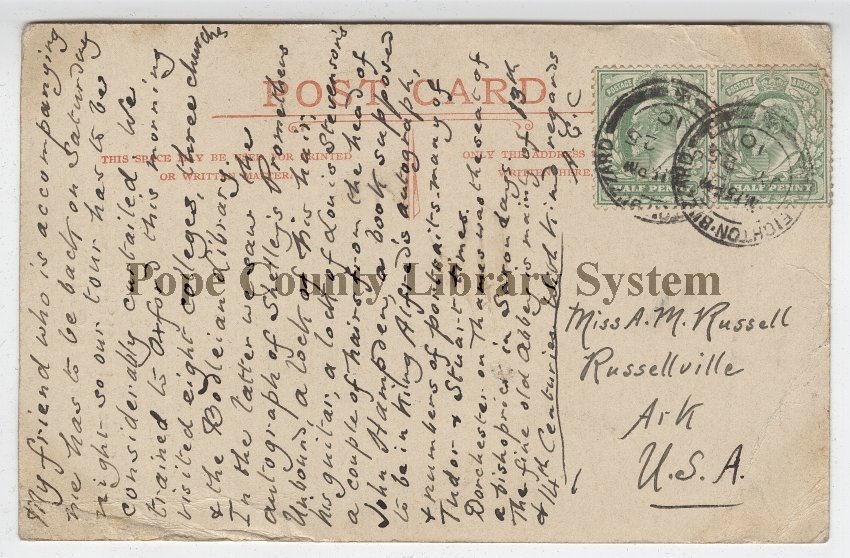 POST CARD
THIS SPACE MAY BE USED FOR PRINTED
OR WRITTEN MATTER.
ONLY THE ADDRESS
WRITTEN HERE.
My friend who is accompanying
me has to be back on Saturday
night so our tour has to be
considerably curtailed. We
trained to Oxford this morning
visited eight colleges, three churches
& the Bodleian Library.
In the latter we saw the
autograph of Shelley's Prometheus
Unbound, a lock of his hair,
his guitar, a lock of Louis Stevenson's
a couple of hairs from the head of
John Hampden, a book supposed
to be in King Alfred's autograph,
& numbers of portraits, many of
Tudor & Stuart times.
Dorchester on Thames was the seat of
a bishopric in Saxon days.
The fine old Abbey is mainly of 13th
& 14th Centuries. With kind regards
HALF PENNY
HALF PENNY
POSTAGE
LEIGHTON BUZZARD
Miss A. M. Russell
Russellville
Ark
U.S.A.
Pope County Library System